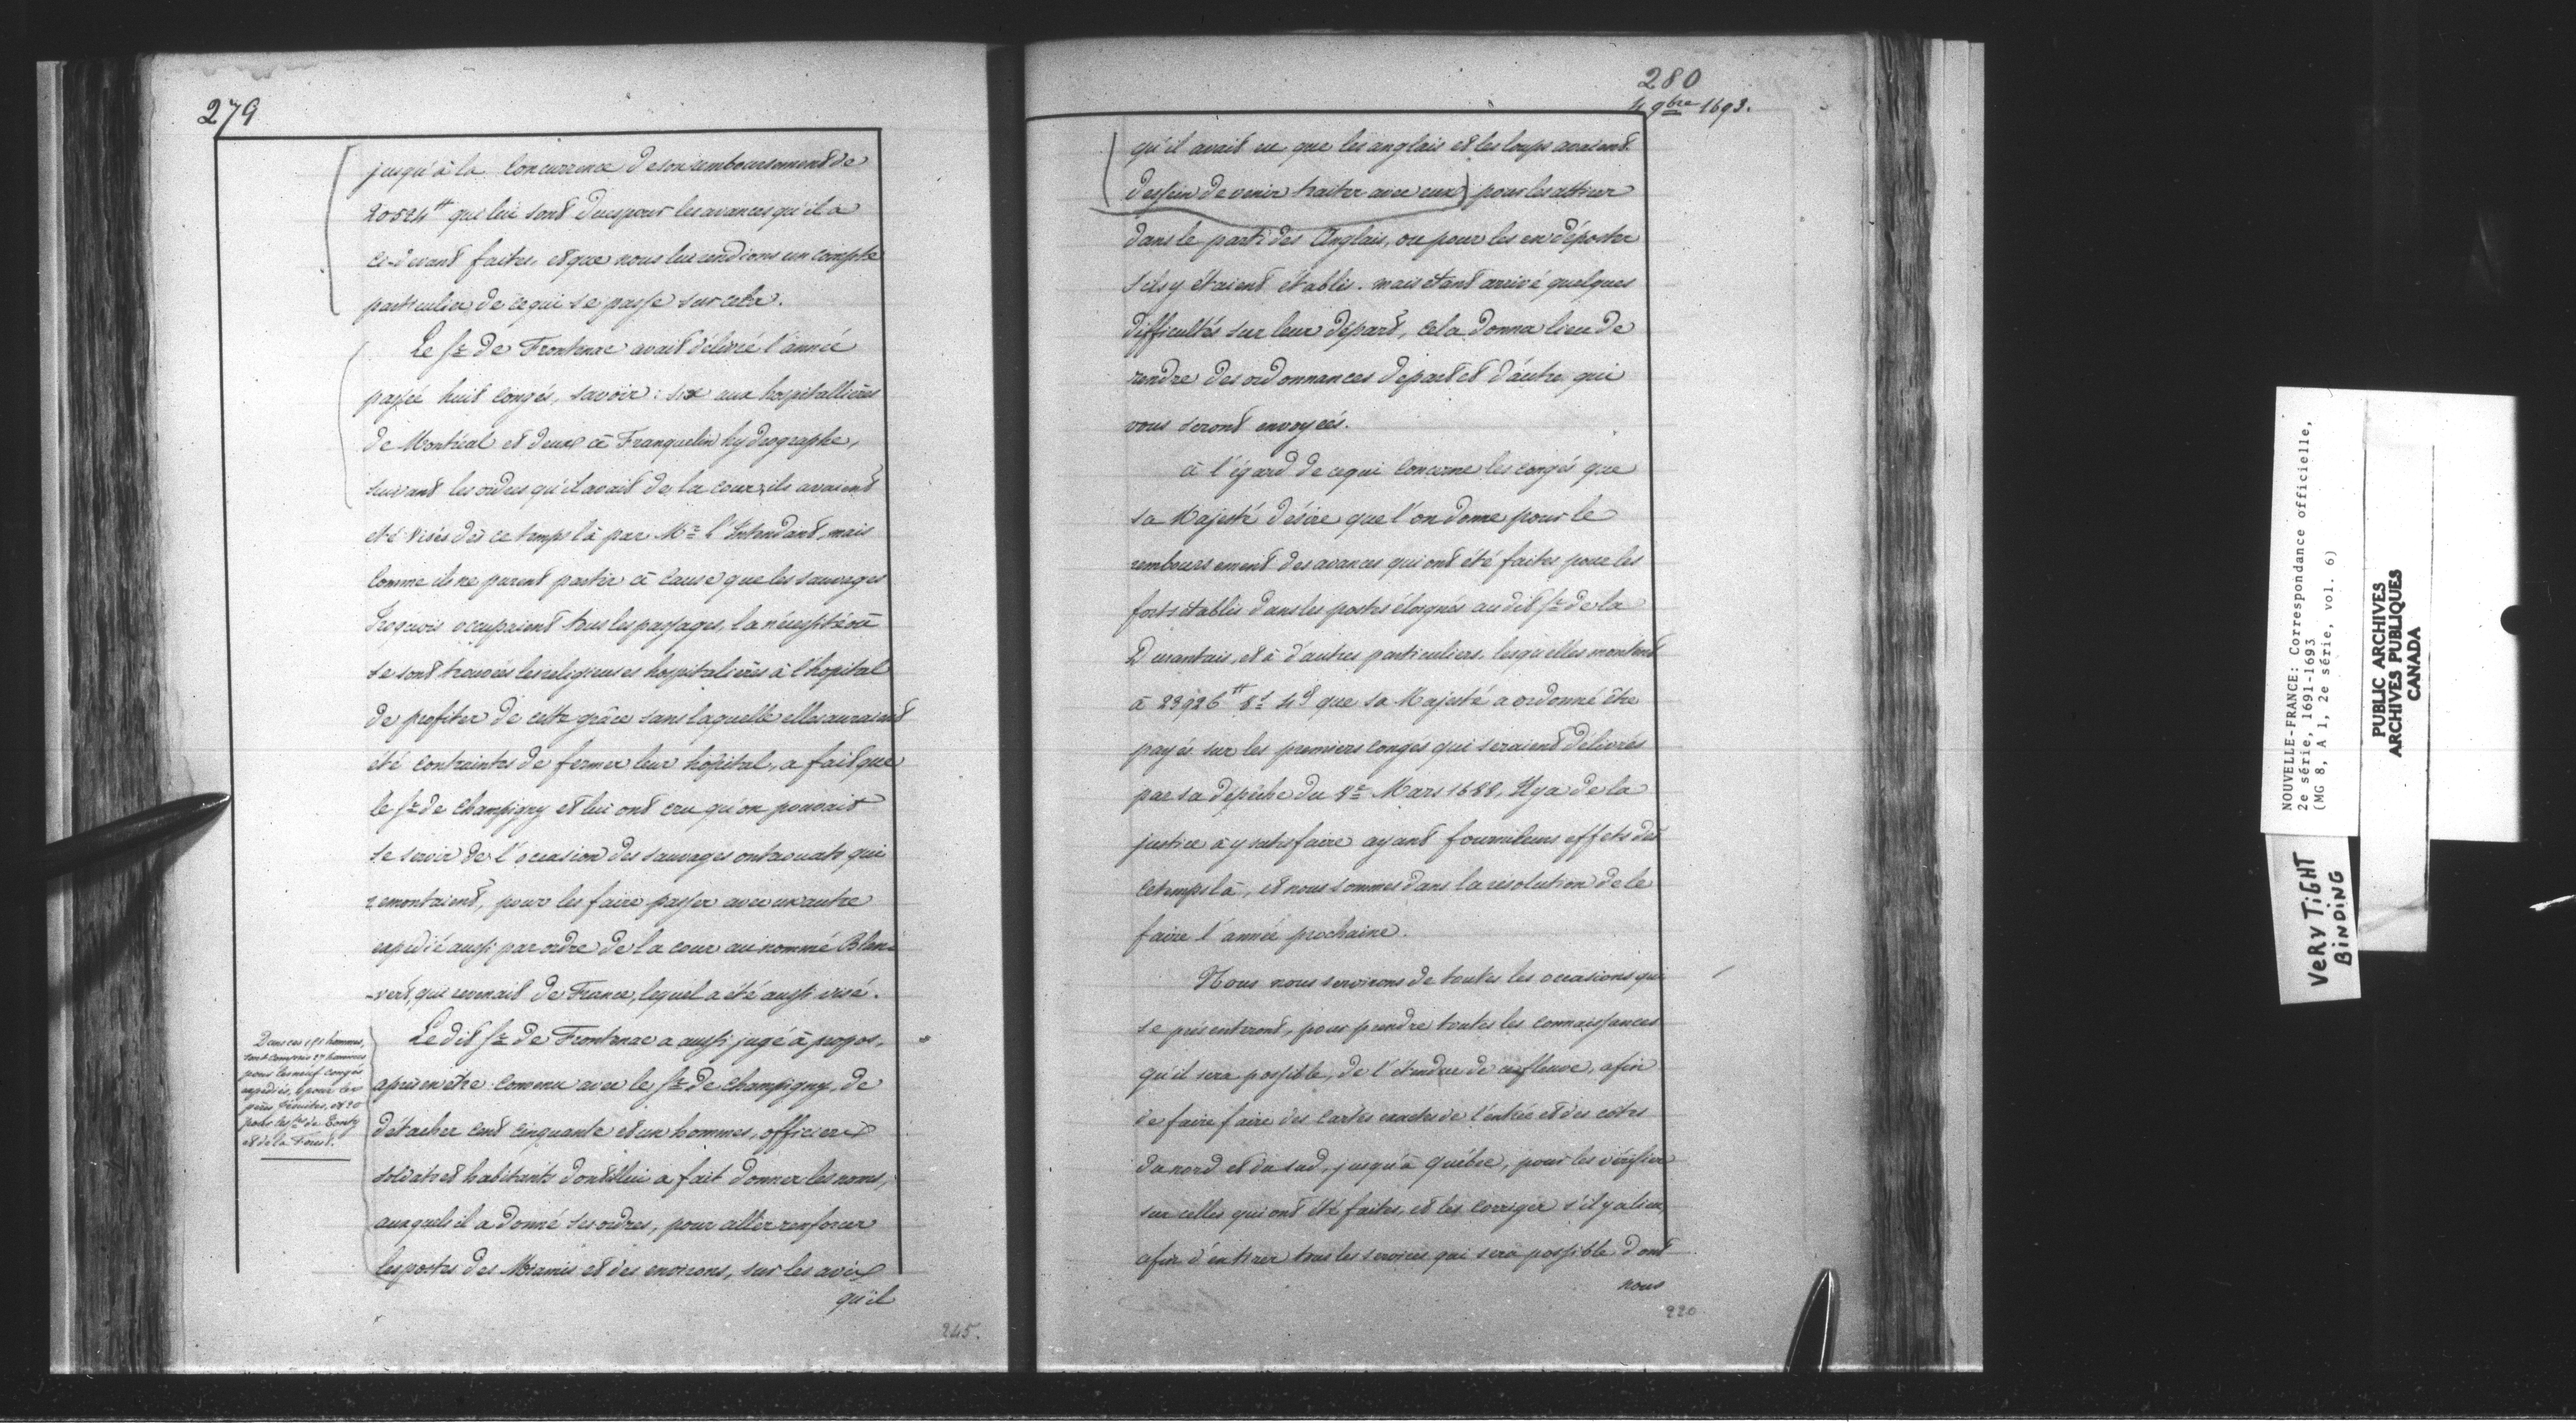 279
jusqu'à la concurrence de son remboursement de
20524ᵗᵗ que lui sont dues pour les avances qu'il a
ci-devant faites, et que nous lui rendions un compte
particulier de ce qui se passe sur cela.
Le Sr. de Frontenac avait délivré l'année
passée huit congés, savoir : six aux hospitallières
de Montréal et deux à Franquelin hydrographe,
suivant les ordres qu'il avait de la cour, ils avaient
été visés dès ce temps là par Mr. l'Intendant, mais
comme ils ne purent partir à cause que les sauvages
Iroquois occupaient tous les passages, la nécessité où
se sont trouvées les religieuses hospitalières à l'hopital
de profiter de cette grâce sans laquelle elles auraient
été contraintes de fermer leur hôpital, a fait que
le Sr. de Champigny et lui ont cru qu'on pouvait
se servir de l'occasion des sauvages outaouats qui
remontaient, pour les faire passer avec un autre
expédié aussi par ordre de la cour au nommé Blen-
-vert, qui revenait de France, lequel a été aussi visé.
Le dit Sr. de Frontenac a aussi jugé à propos,
après en être convenu avec le Sr. de Champigny, de
détacher cent cinquante et un hommes, officiers
soldats et habitants dont il lui a fait donner les noms,
auxquels il a donné ses ordres, pour aller renforcer
les postes des Miamis et des environs, sur les avis
qu'il
Dans ces 151 hommes,
sont compris 27 hommes
pour les neuf congés
expédiés, pour les
pères Jésuites, et 20
pour les Srs. de Tonty
et de la Forest.
245.
280
4 9bre 1693.
qu'il avait eu que les anglais et les loups avaient
dessein de venir traiter avec eux) pour les attirer
dans le parti des Anglais, ou pour les en déposter
s'ils y étaient établis. mais étant arrivé quelques
difficultés sur leur départ, cela donna lieu de
rendre des ordonnances de part et d'autre qui
vous seront envoyées.
à l'égard de ce qui concerne les congés que
sa Majesté désire que l'on donne pour le
remboursement des avances qui ont été faites pour les
forts établis dans les postes éloignés au dit Sr. de la
Durantais, et à d'autres particuliers, lesquelles montent
à 23926ᵗᵗ 8s 4d que sa Majesté a ordonné être
payés sur les premiers congés qui seraient délivrés
par sa dépêche du 8e Mars 1688, Il y a de la
justice à y satisfaire ayant fourni leurs effets dès
ce temps là, et nous sommes dans la résolution de le
faire l'année prochaine.
Nous nous servirons de toutes les occasions qui
se présenteront, pour prendre toutes les connaissances
qu'il sera possible, de l'étendue de ce fleuve, afin
de faire faire des Cartes exactes de l'entrée et des côtes
du nord et du sud, jusqu'à Québec, pour les vérifier
sur celles qui ont été faites, et les corriger s'il y a lieu,
afin d'en tirer tous les services qui sera possible dont
nous
220
NOUVELLE-FRANCE: Correspondance officielle,
2e série, 1691-1693
(MG 8, A 1, 2e série, vol. 6)
PUBLIC ARCHIVES
ARCHIVES PUBLIQUES
CANADA
VERY TIGHT
BINDING